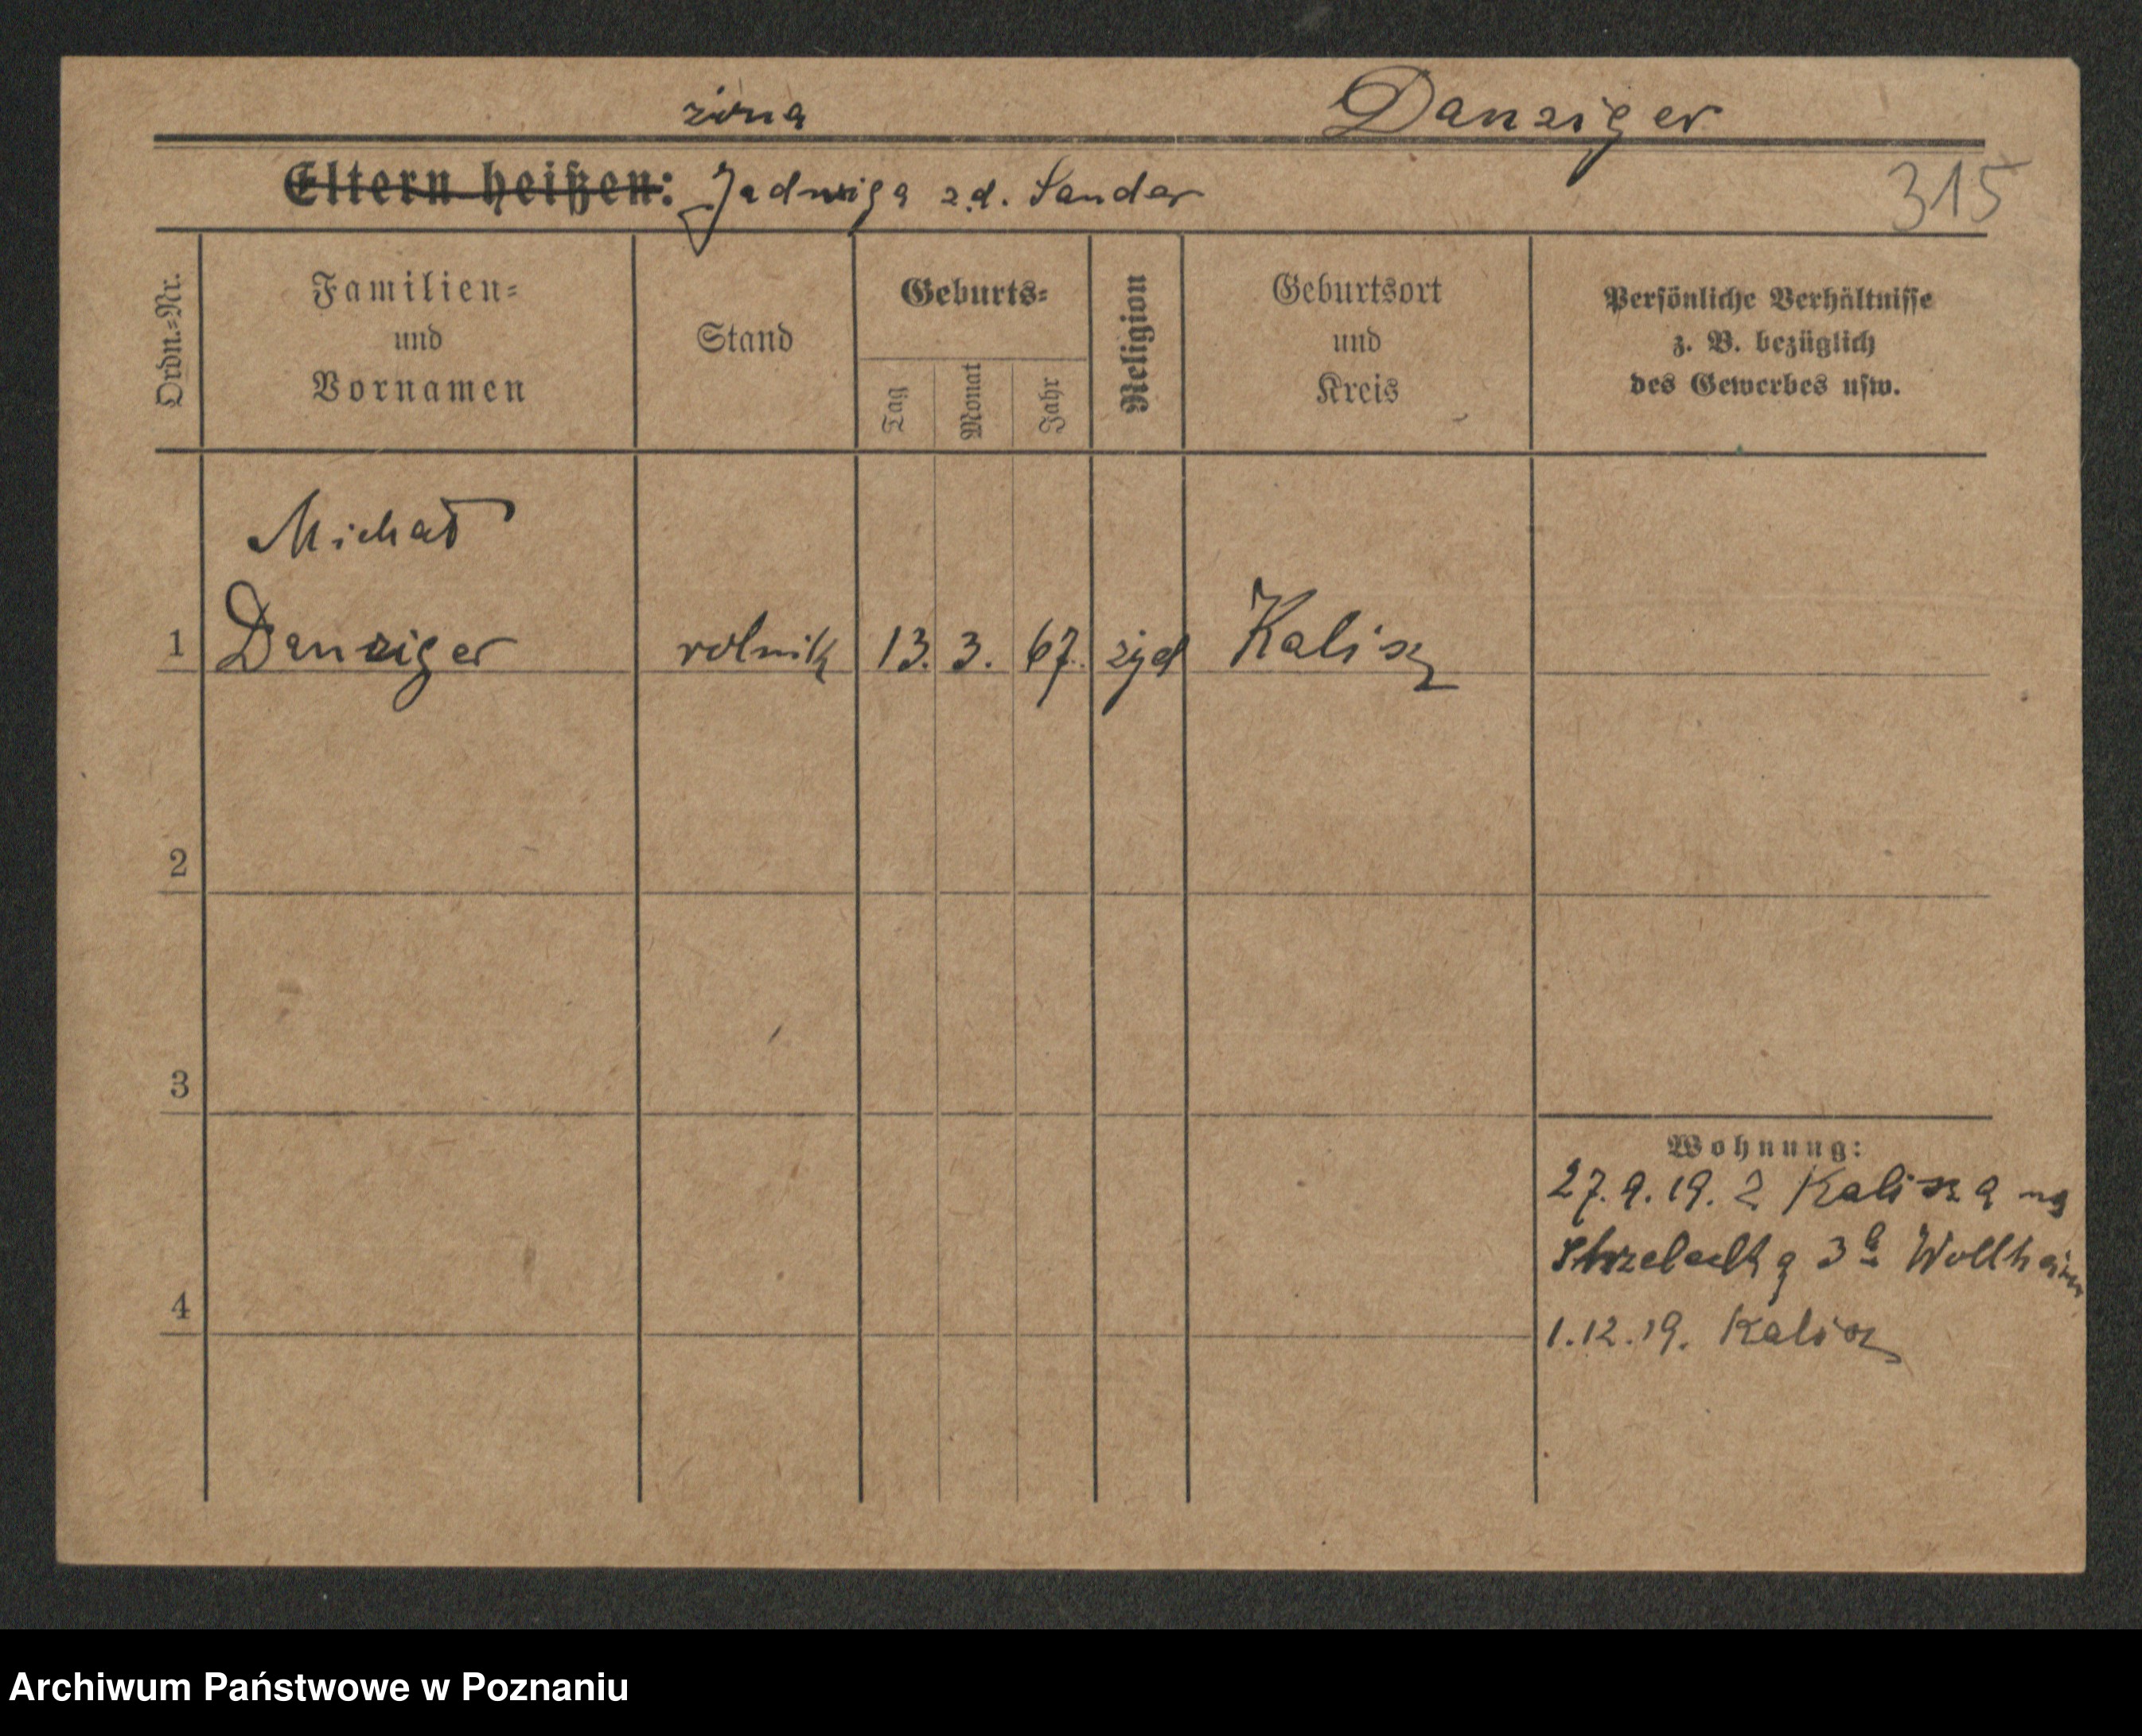 żona Danziger
Eltern heißen: Jadwiga z.d. Sander 315
Ordn.=Nr.
Familien=
und
Vornamen
Stand
Geburts=
Tag
Monat
Jahr
Religion
Geburtsort
und
Kreis
Persönliche Verhältnisse
z. B. bezüglich
des Gewerbes usw.
Michał
1 Danziger rolnik 13. 3. 67. żyd Kalisz
2
3
4
Wohnung:
27.9.19. z Kalisza na
Strzelecką 3a Wollheim
1.12.19. Kalisz
Archiwum Państwowe w Poznaniu